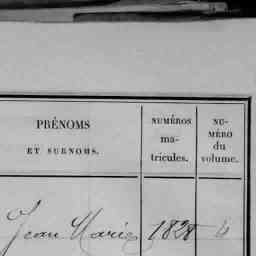 PRÉNOMS
ET SURNOMS.
NUMÉROS
ma-
tricules.
NU-
MÉRO
du
volume.
Jean Marie 1828 4